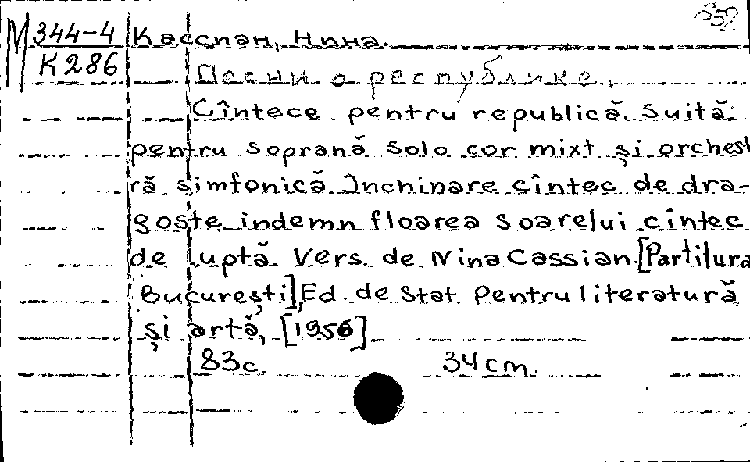 М 344-4 Касспан, Нина.
К 286
Песни о республике.
Cîntece pentru republică. Suită
pentru soprană solo cor mixt și orchest
ră simfonică Închinare cîntec de dra-
goste îndemn floarea soarelui cîntec
de luptă. Vers. de Nina Cassian [Partitura
București], Ed. de Stat. Pentru literatură
și artă, [1956]
83c. 34cm.